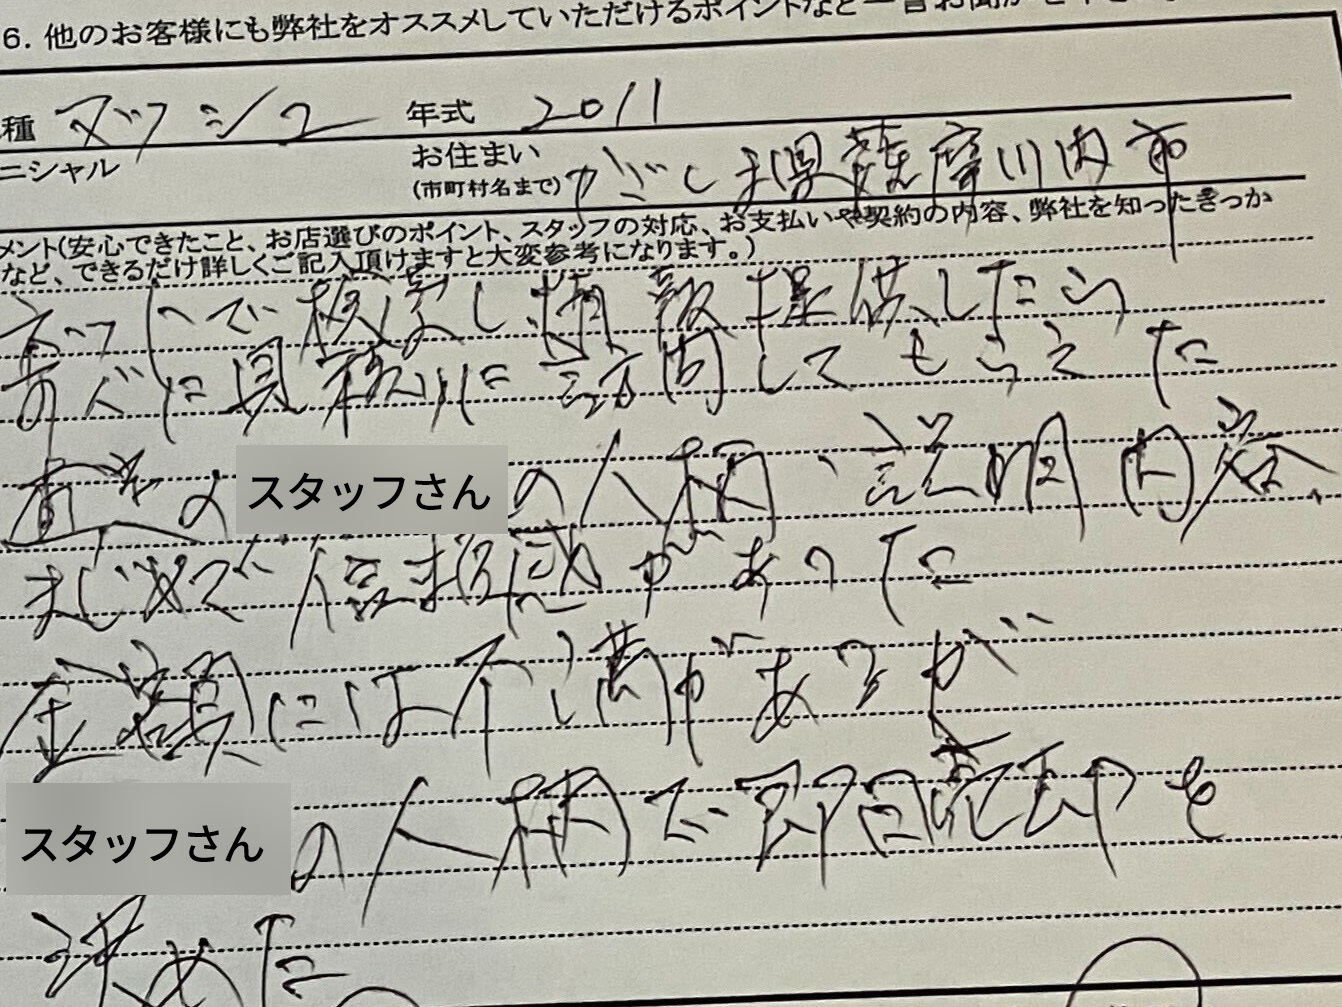 6. 他のお客様にも弊社をオススメしていただけるポイントなど一言お聞か
種 マツシマ 年式 2011
ニシャル お住まい(市町村名まで) かごしま県薩摩川内市
メント(安心できたこと、お店選びのポイント、スタッフの対応、お支払いや契約の内容、弊社を知ったきっか
など、できるだけ詳しくご記入頂けますと大変参考になります。)
ネットで検索し情報提供したら
すぐに見積りに訪問してもらえた
査定の スタッフさん の人柄、説明内容、
まじめで信頼感があった
金額には不満があるが
スタッフさん の人柄で即日売却を
決めた